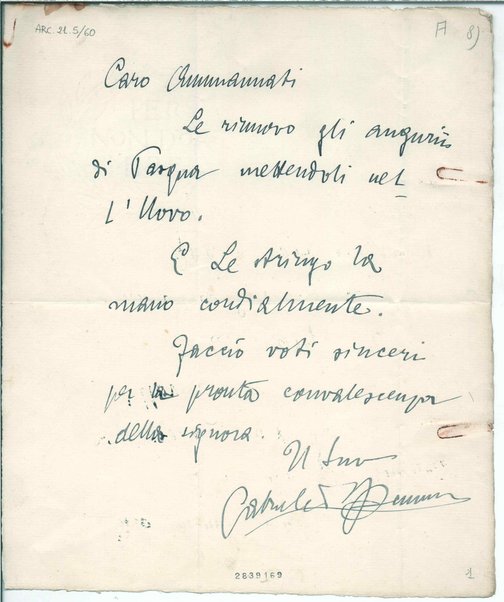 ARC. 21. 5/60
A 8)
Caro Ammannati
Le rinnovo gli augurii
di Pasqua mettendoli nel
l'Uovo.
E Le stringo la
mano cordialmente.
Faccio voti sinceri
per la pronta convalescenza
della signora.
Il Suo
Gabriele d'Annunzio
2839169
1